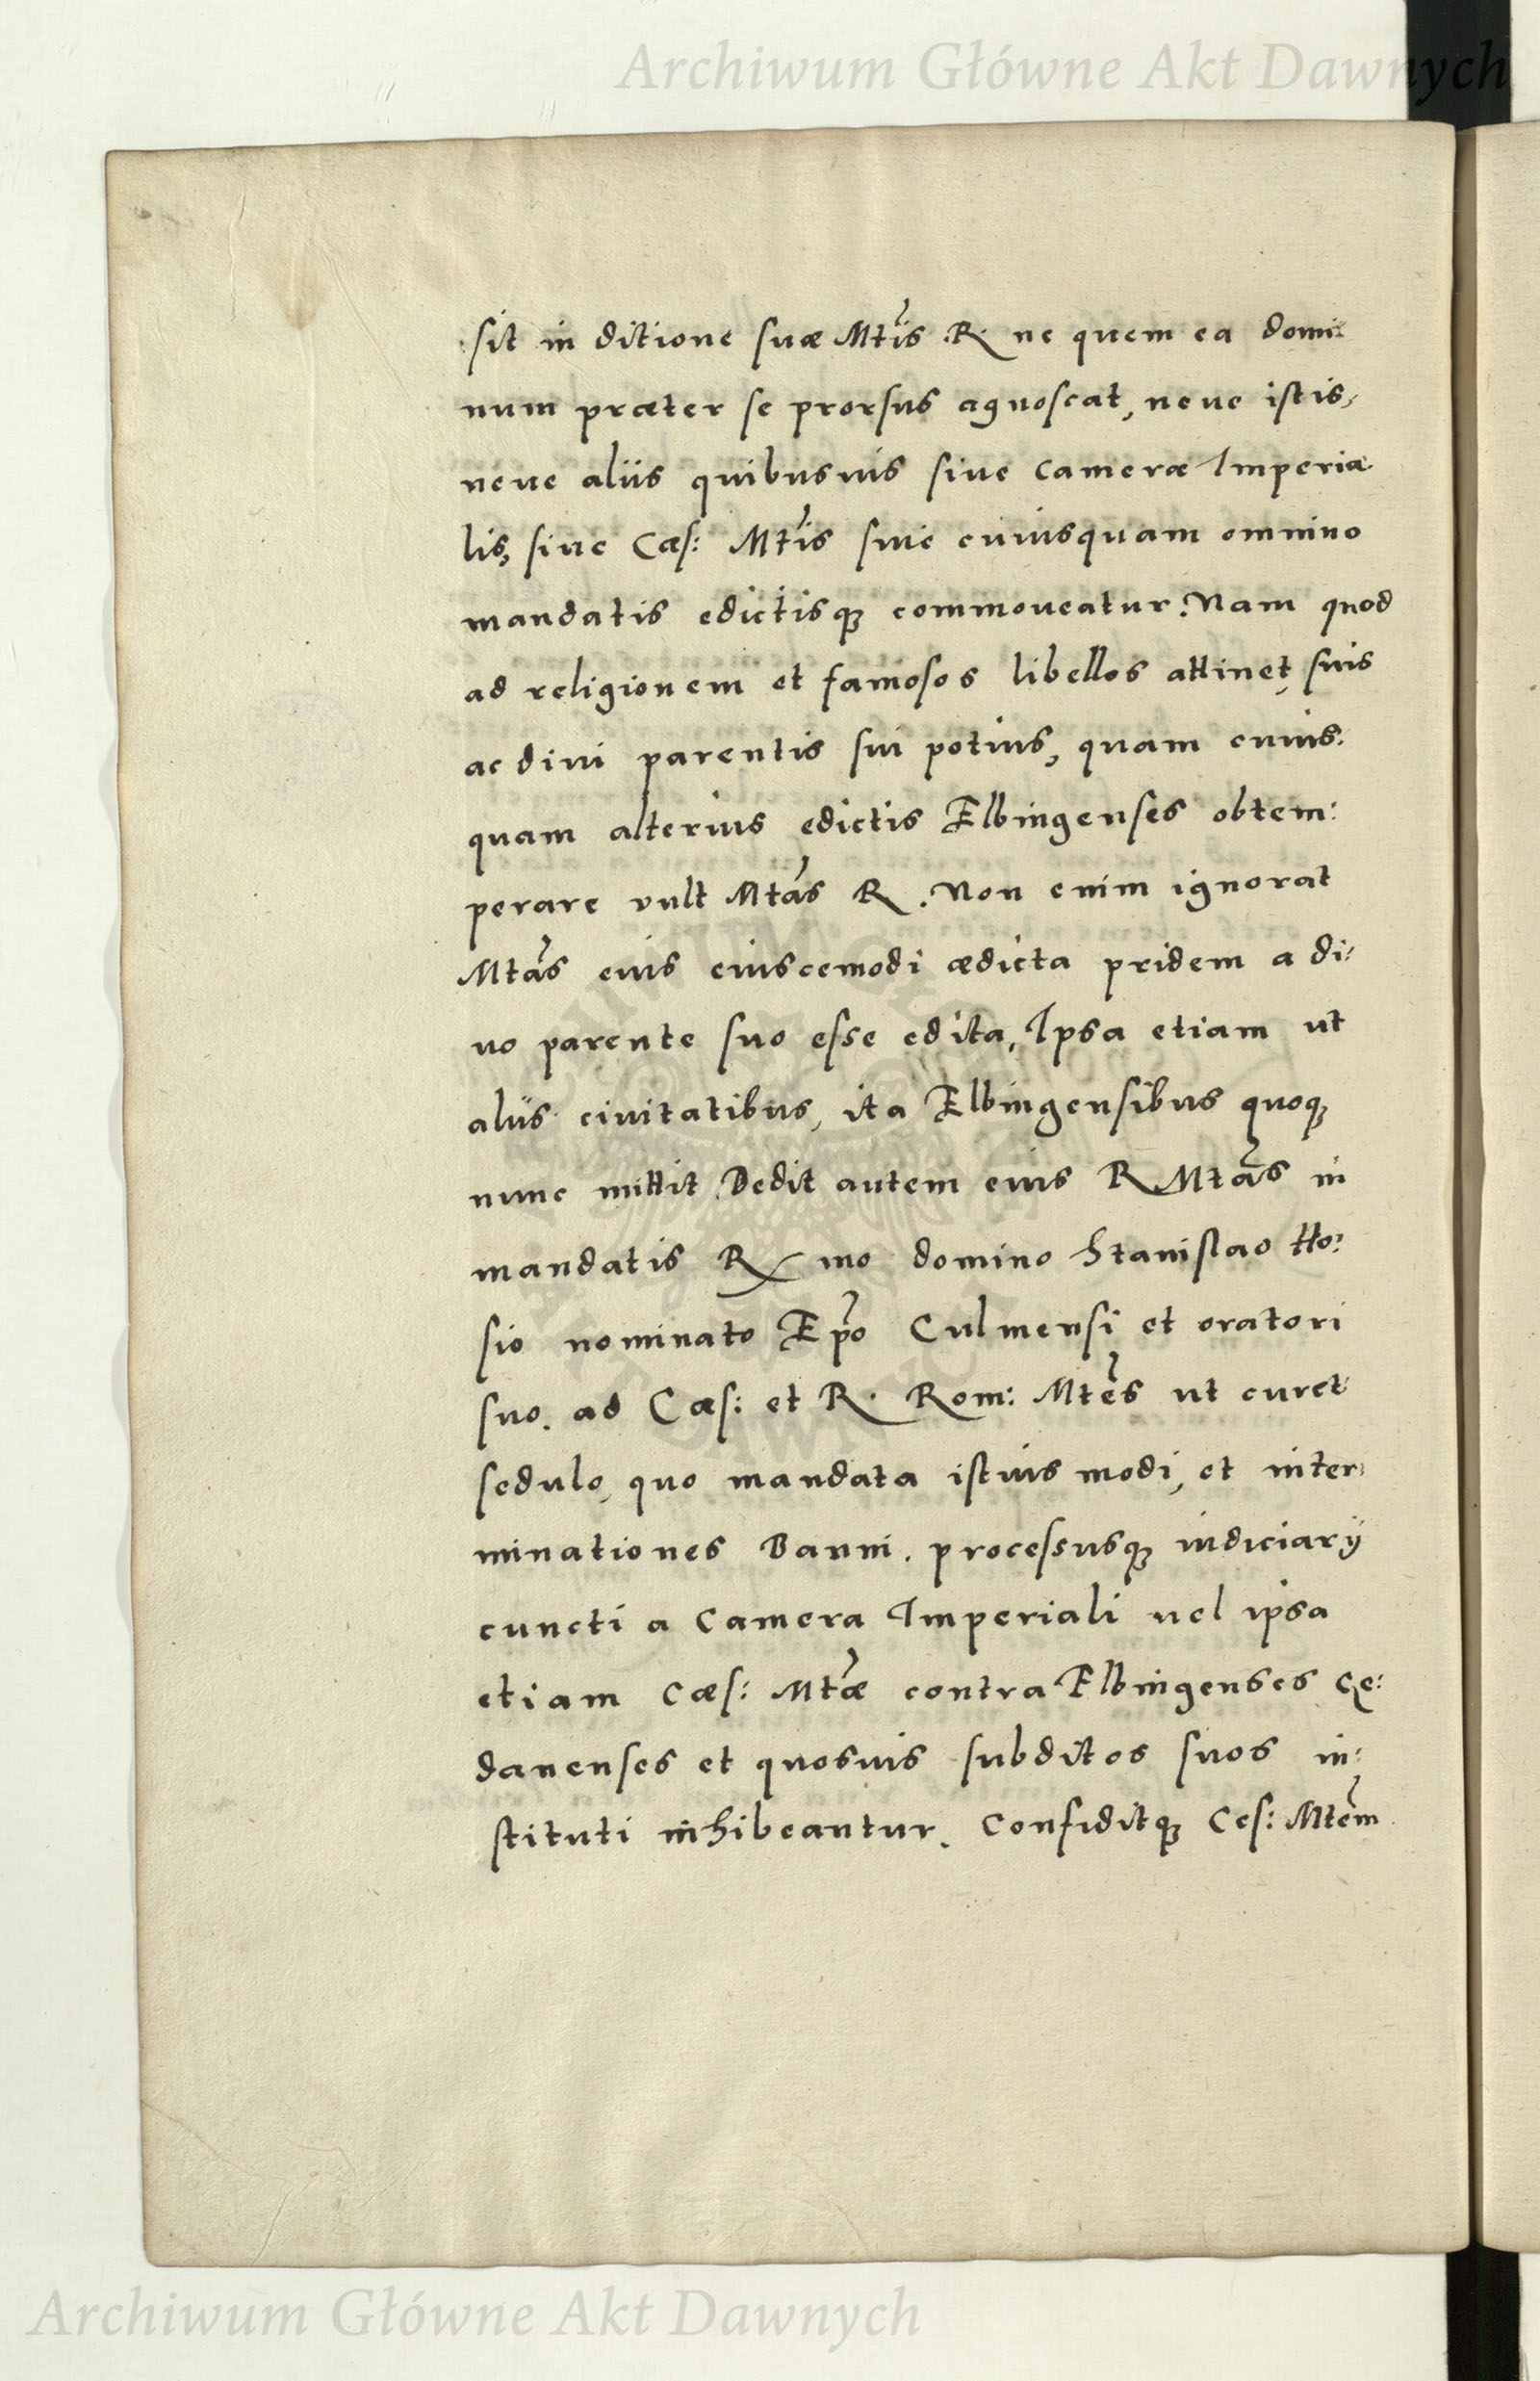 Archiwum Główne Akt Dawnych
sit in ditione suæ Mtis R. ne quem ea domi-
num præter se prorsus agnoscat, neue istis,
neue aliis quibusuis siue Cameræ Imperia
lis, siue Cæs: Mtis siue cuiusquam omnino
mandatis edictisq3 commoueatur. Nam quod
ad religionem et famosos libellos attinet, suis
ac diui parentis sui potius, quam cuius:
quam alterius edictis Elbingenses obtem:
perare uult Mtas R. Non enim ignorat
Mtas eius eiuscemodi ædicta pridem a di:
uo parente suo esse edita, Ipsa etiam ut
aliis ciuitatibus, ita Elbingensibus quoq3
nunc mittit. Dedit autem eius R Mtas in
mandatis R mo domino Stanislao Ho:
sio nominato Epo Culmensi et oratori
suo. ad Cæs: et R. Rom: Mtes ut curet
sedulo, quo mandata istius modi, et inter:
minationes Banni. processusq3 iudiciarÿ
cuncti a Camera Imperiali uel ipsa
etiam Cæs: Mtæ contra Elbingenses Ge:
danenses et quosuis subditos suos in:
stituti inhibeantur. Confiditq3 Ces: Mtem
Archiwum Główne Akt Dawnych